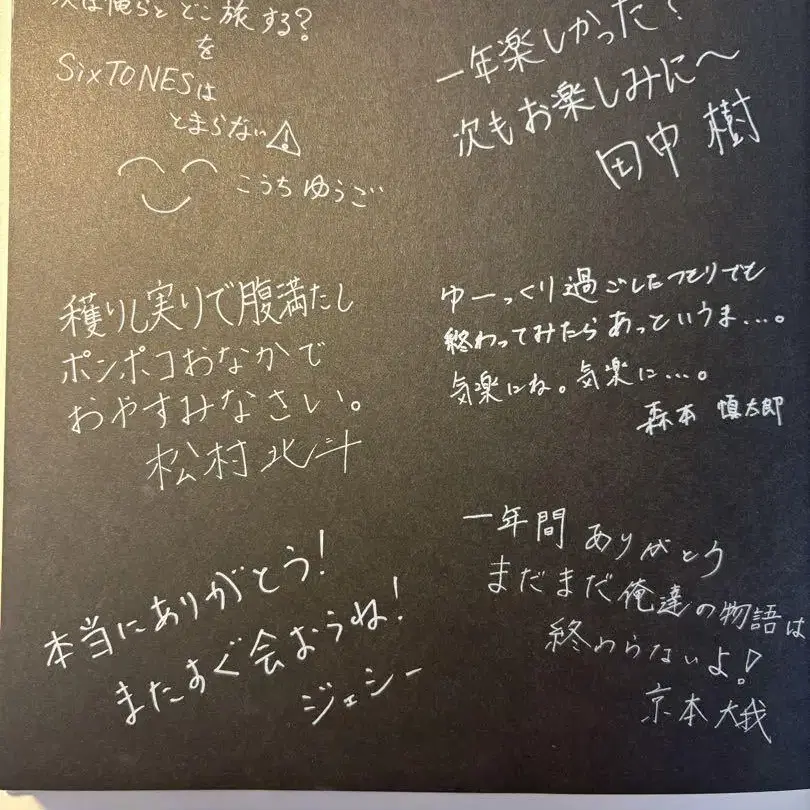 次は俺らとどこ旅する?
を
SixTONESは
とまらない⚠
こうちゆうご
一年楽しかった?
次もお楽しみに〜
田中樹
穫りし実りで腹満たし
ポンポコおなかで
おやすみなさい。
松村北斗
ゆーっくり過ごしたつもりでも
終わってみたらあっというま...。
気楽にね。気楽に...。
森本慎太郎
本当にありがとう!
またすぐ会おうね!
ジェシー
一年間ありがとう
まだまだ俺達の物語は
終わらないよ!
京本大我